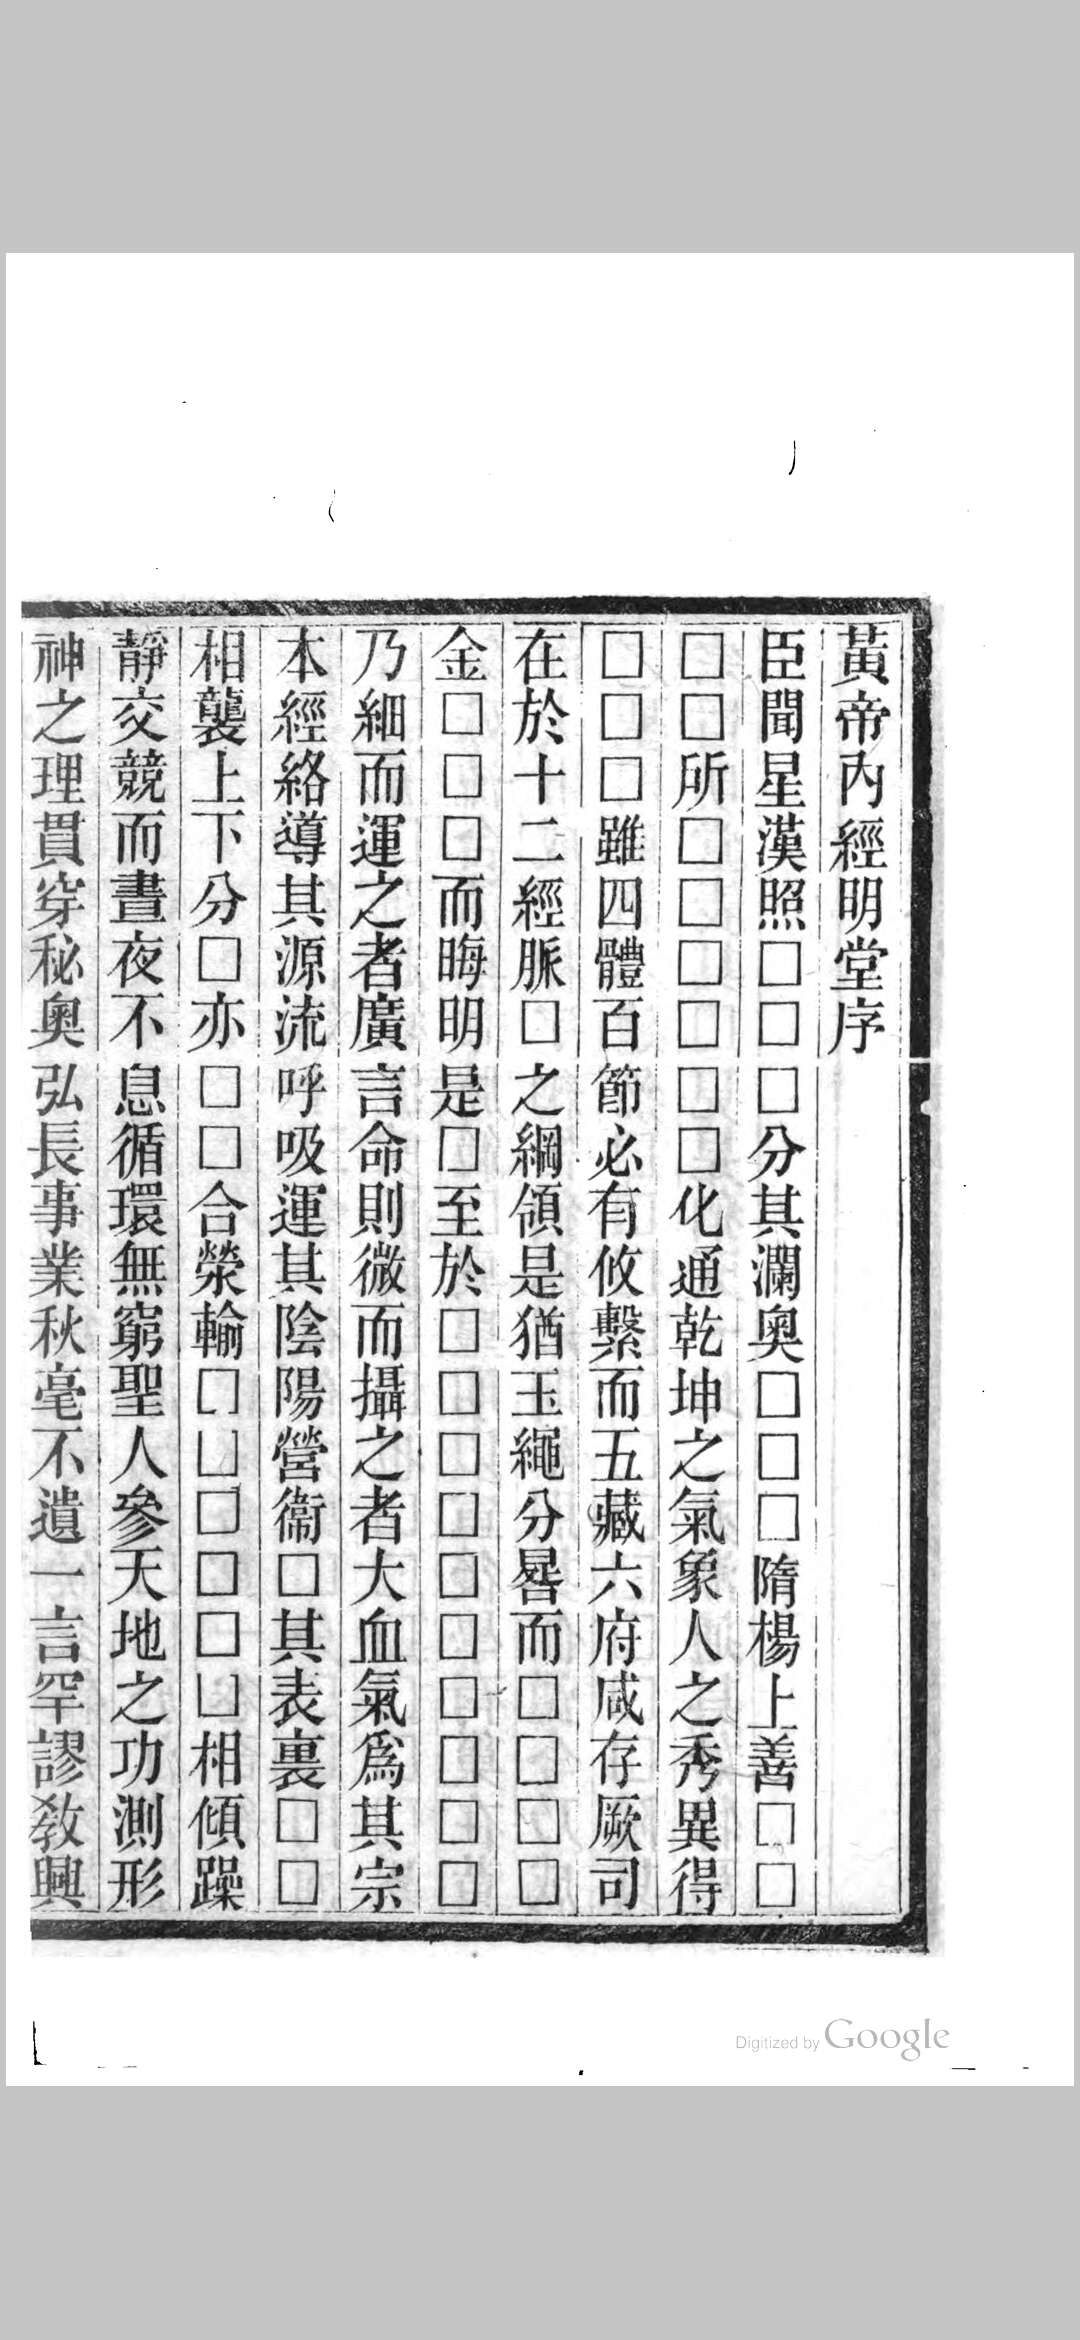 黃帝內經明堂序
臣聞星漢照□□□分其瀾奧□□□隋楊上善□□
□□所□□□□□□化通乾坤之氣象人之秀異得
□□□雖四體百節必有攸繫而五藏六府咸存厥司
在於十二經脈□之綱領是猶玉繩分晷而□□□□
金□□□而晦明是□至於□□□□□□□□□□
乃細而運之者廣言命則微而攝之者大血氣爲其宗
本經絡導其源流呼吸運其陰陽營衞□其表裏□□
相襲上下分□亦□□合滎輸□□□□□□相傾躁
靜交競而晝夜不息循環無窮聖人參天地之功測形
神之理貫穿秘奧弘長事業秋毫不遺一言罕謬敎興
Digitized by Google